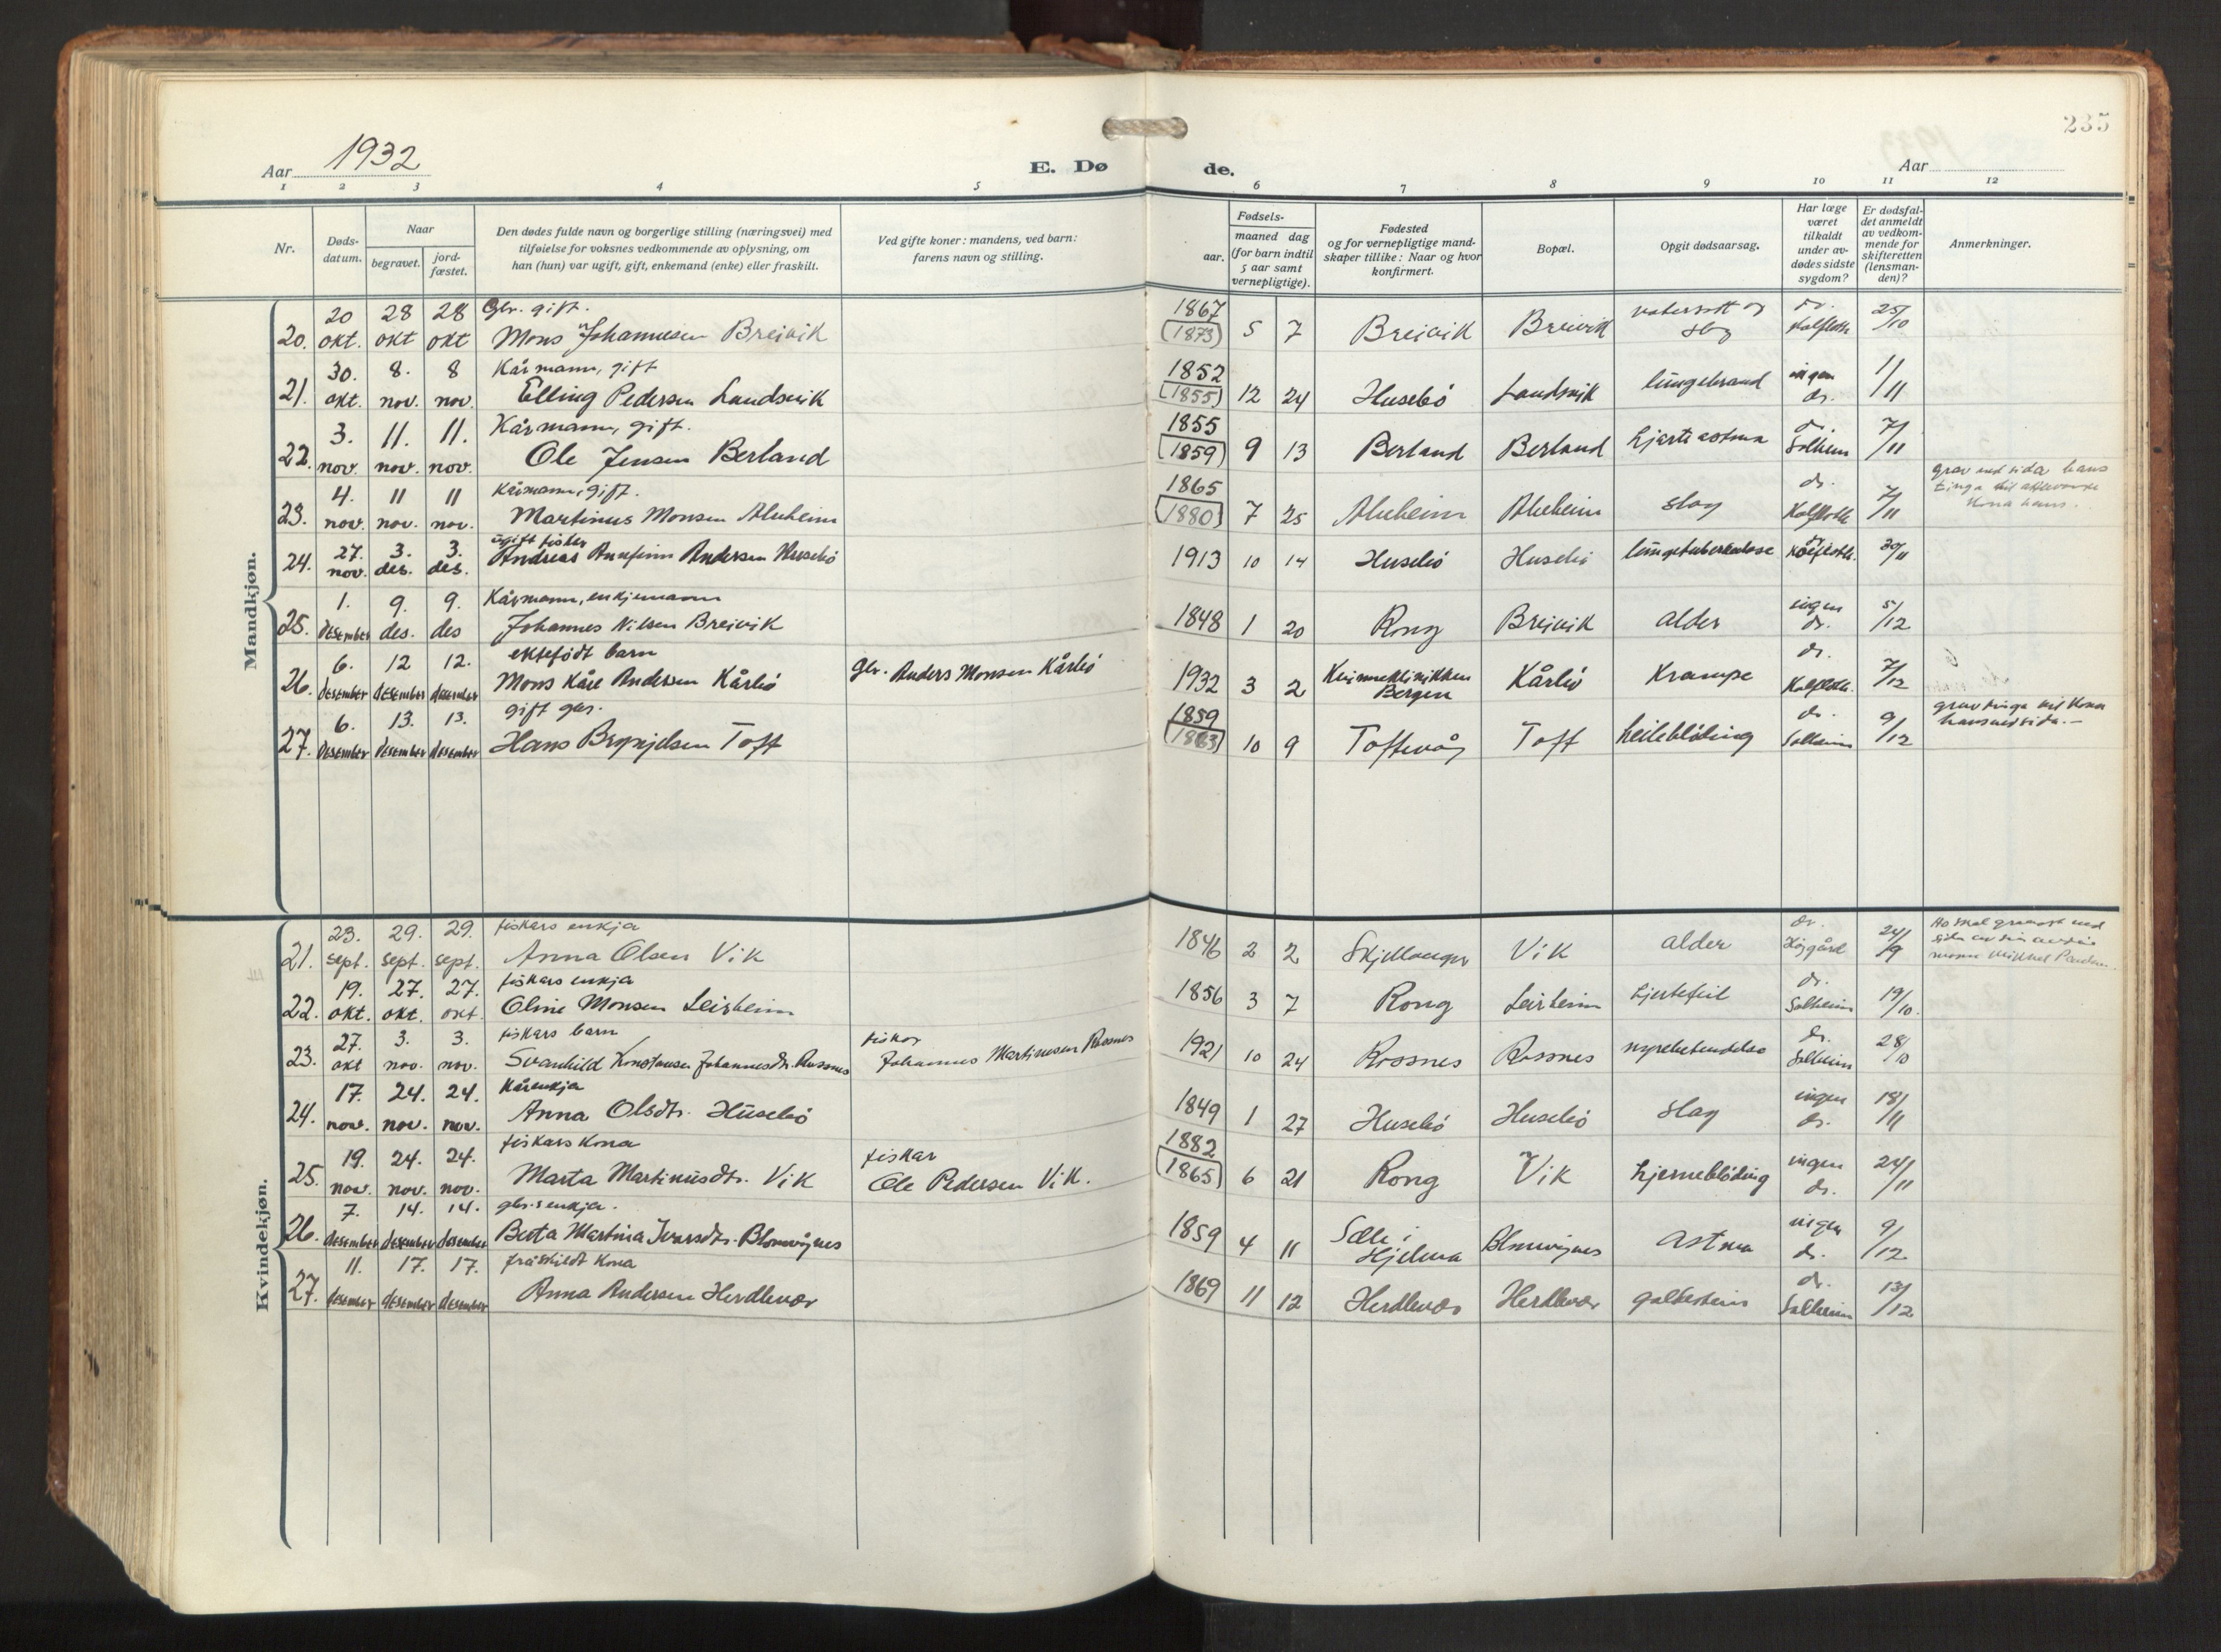 235
Aar 1932
E. Dø
de.
Aar
1 2 3 4 5 6 7 8 9 10 11 12
Nr.
Døds-
datum.
Naar
begravet.
jord-
fæstet.
Den dødes fulde navn og borgerlige stilling (næringsvei) med
tilføielse for voksnes vedkommende av oplysning, om
han (hun) var ugift, gift, enkemand (enke) eller fraskilt.
Ved gifte koner: mandens, ved barn:
farens navn og stilling.
Fødsels-
aar.
maaned dag
(for barn indtil
5 aar samt
vernepligtige).
Fødested
og for vernepligtige mand-
skaper tillike: Naar og hvor
konfirmert.
Bopæl.
Opgit dødsaarsag.
Har læge
været
tilkaldt
under av-
dødes sidste
sygdom?
Er dødsfal-
det anmeldt
av vedkom-
mende for
skifteretten
(lensman-
den)?
Anmerkninger.
Mandkjøn.
20 28 28 Gbr. gift. 1867 vatersott og dr. 25/10
20. okt. okt okt Mons Johannesen Breivik (1873) 5 7 Breivik Breivik slag Kalfloth
30. 8. 8 Kårmann, gift 1852 ingen 1/11
21. okt. nov. nov. Elling Pedersen Landsvik (1855) 12 24 Husebö Landsvik lungebrand dr.
3. 11. 11. Kårmann, gift. 1855 dr. 7/11
22. nov. nov. nov. Ole Jensen Berland (1859) 9 13 Berland Berland hjarteastma Solheim
4. 11 11 Kårmann, gift. 1865 dr. 7/11 grav ved sida hans
tinga til
Kona hans.
23. nov. nov. nov. Martinus Monsen Alvheim (1880) 7 25 Alvheim Alvheim slag Kalfloth
27. 3. 3. ugift fisker
24. nov. des. des. Andreas Andersen Husebö 1913 10 14 Husebö Husebö lungetuberkulose Kalfloth. 30/11
1. 9. 9. Kårmann, enkjemann ingen 5/12
25. desember des. des Johannes Nilsen Breivik 1848 1 20 Rong Breivik alder dr.
6. 12 12. ektefödt barn dr. 7/12
26. desember desember desember Mons Kåre Andersen Kårbö gbr. Anders Monsen Kårbö 1932 3 2 Kvinneklinikken Bergen Kårbö Krampe Kalfloth.
6. 13. 13. gift gbr. 1859 dr. 9/12 grav tinga til Kona
hans ved sida.
27. desember desember desember Hans Brynjelsen Toft (1863) 10 9 Toftevåg Toft heileblöding Solheim
Kvindekjøn.
23. 29. 29. fiskars enkja dr. 24/9 ved
sida av sin
mann Mikkel
21. sept. sept. sept. Anna Olsen Vik 1846 2 2 Skjellanger Vik alder Höjgård
19. 27. 27. fiskars enkja dr. 19/10.
22. okt. okt. okt. Oline Monsen Leirheim 1856 3 7 Rong Leirheim hjertefeil Solheim
27. 3. 3. fiskars barn fiskar dr. 28/10
23. okt nov. nov. Svanhild Konstanse Johannesdtr. Rossnes Johannes Martinusen Rossnes 1921 10 24 Rossnes Rossnes nyrebetendelse Solheim
17. 24. 24. Kårenkja ingen 18/11
24. nov. nov. nov. Anna Olsdtr. Husebö 1849 1 27 Husebö Husebö slag dr.
19. 24. 24. fiskars Kona fiskar 1882 ingen 24/11
25. nov. nov. nov. Marta Martinusdtr. Vik Ole Pedersen Vik. (1865) 6 21 Rong Vik hjerneblöding dr.
7. 14. 14. gbr.s enkja. ingen 9/12
26. desember desember desember Berta Martina Ivarsdtr. Blomvågnes 1859 4 11 Sæle i Hjelma Blomvågnes Astma dr.
11. 17. 17. fråskildt Kona dr. 13/12
27. desember desember desember Anna Andersen Herdlevær 1869 11 12 Herdlevær Herdlevær gallestein Solheim